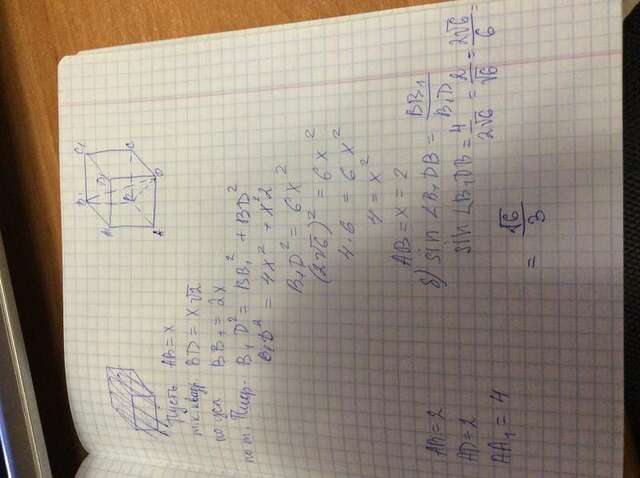 Пусть AB = x
т.к. квадр. BD = x√2
по усл. BB₁ = 2x
по т. Пифаг. B₁D² = BB₁² + BD²
B₁D² = 4x² + x²2
B₁D² = 6x²
(2√6)² = 6x²
4·6 = 6x²
4 = x²
AB = x = 2
б) sin ∠B₁DB = BB₁/B₁D
sin ∠B₁DB = 4/2√6 = 2/√6 = 2√6/6 =
= √6/3
AB = 2
AD = 2
AA₁ = 4